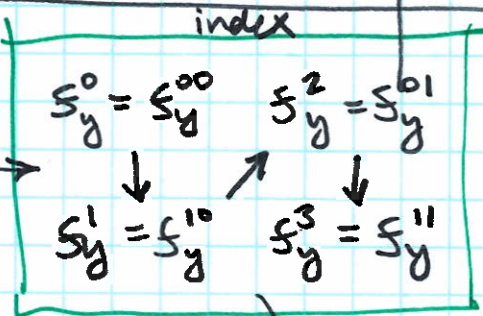 index
f_y^0 = f_y^{00} f_y^2 = f_y^{01}
↓ ↗ ↓
f_y^1 = f_y^{10} f_y^3 = f_y^{11}